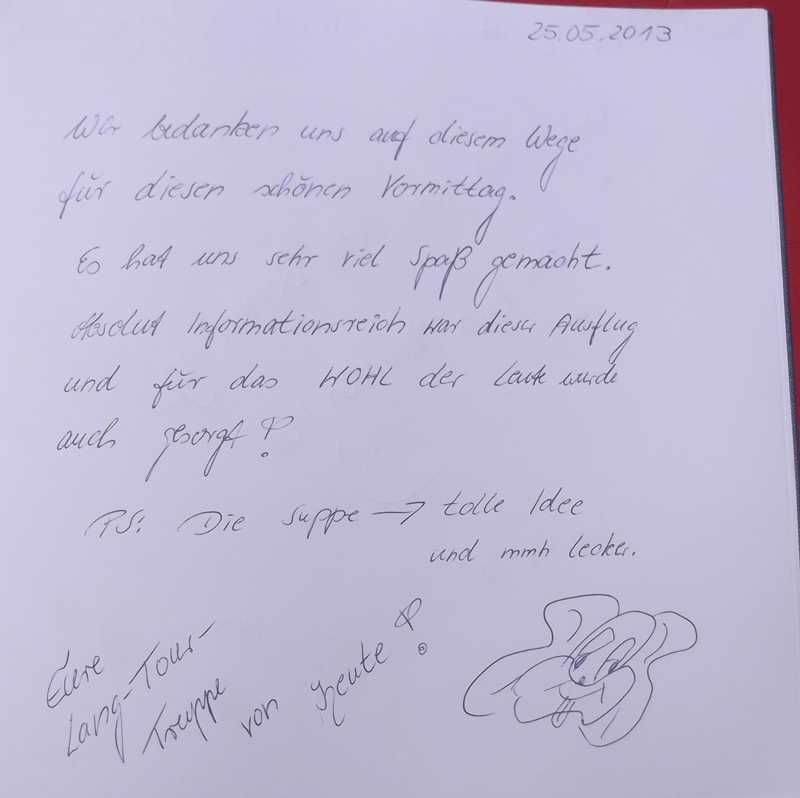 25.05.2013
Wir bedanken uns auf diesem Wege
für diesen schönen Vormittag.
Es hat uns sehr viel Spaß gemacht.
Absolut Informationsreich war dieser Ausflug
und für das WOHL der Leute wurde
auch gesorgt!
PS: Die Suppe → tolle Idee
und mmh lecker.
Eure
Lang-Tour-
Truppe
von Heute!